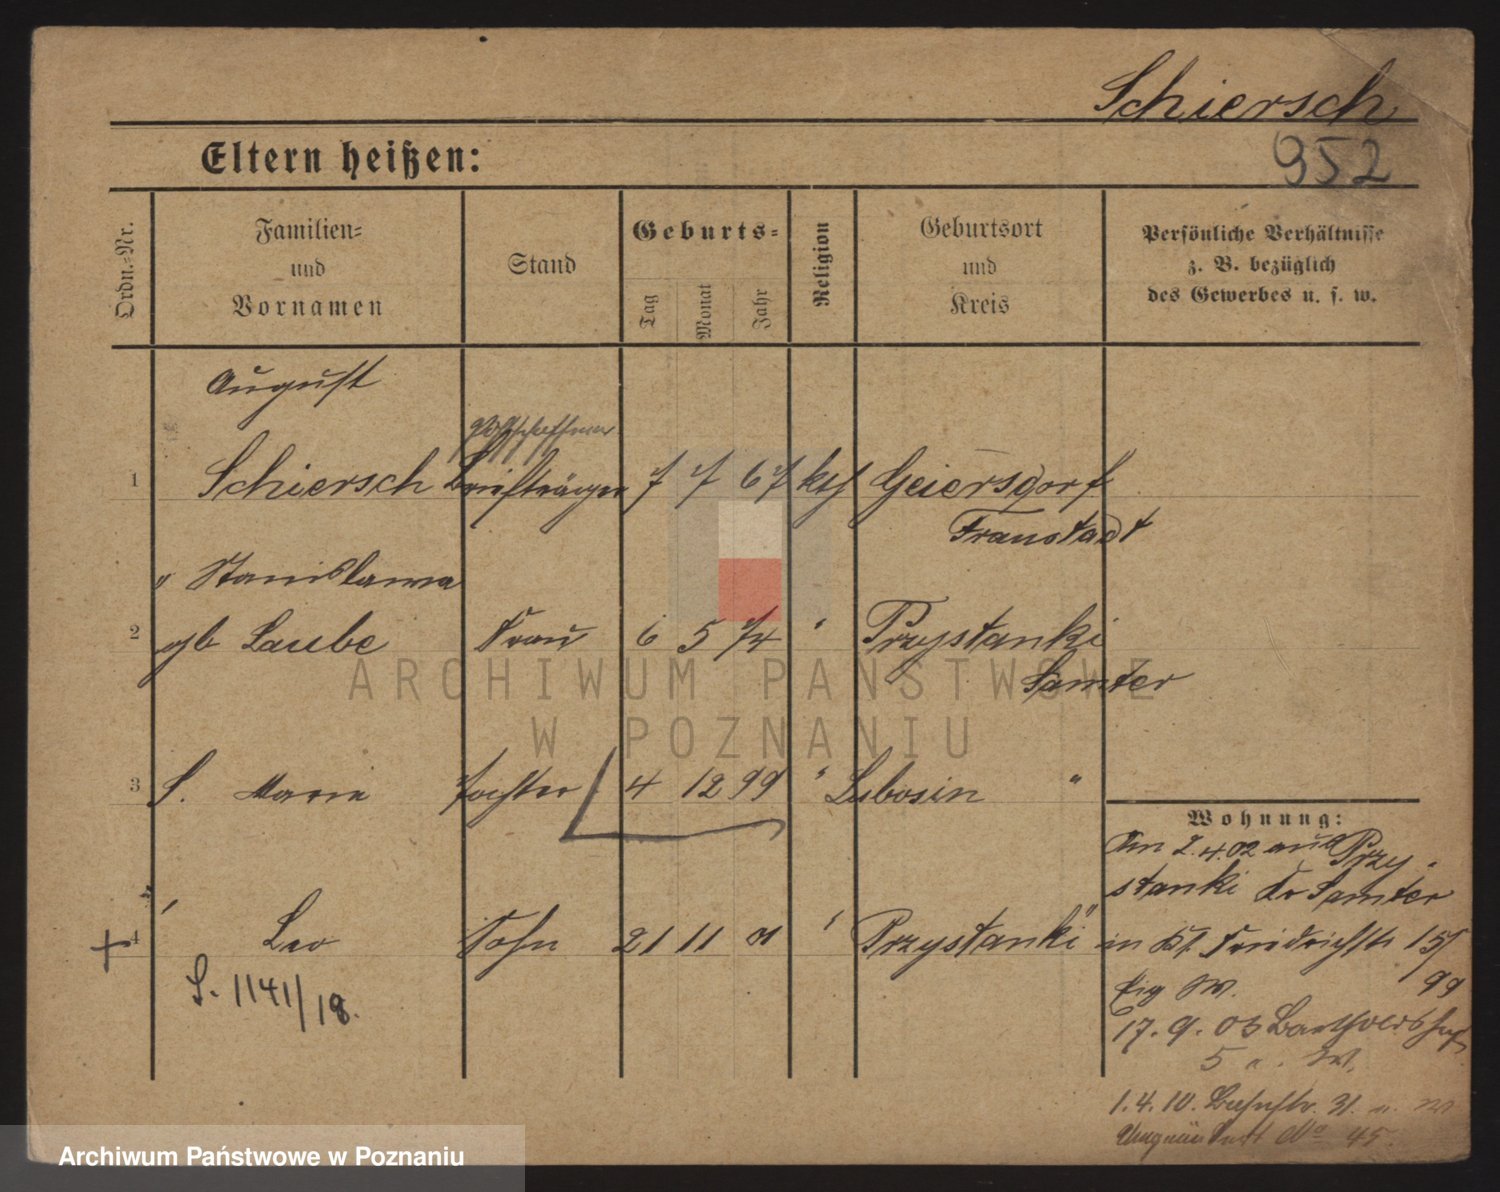 Schiersch
952
Eltern heißen:
Ordn.-Nr.
Familien-
und
Vornamen
Stand
Geburts-
Tag
Monat
Jahr
Religion
Geburtsort
und
Kreis
Persönliche Verhältnisse
z. B. bezüglich
des Gewerbes u. s. w.
August
Postschaffner
1 Schiersch Briefträger 7 7 67 kth Geiersdorf
Fraustadt
" Stanislawa
2 gb Laube Frau 6 5 74 " Przystanki
Samter
3 S. Marie Tochter 4 12 99 " Lubosin "
4 " Leo Sohn 21 11 01 " Przystanki "
S. 1141/18.
Wohnung:
Am 2.4.02 aus Przy-
stanki Kr Samter
in Friedrichstr 15/
99
17. 9. 03
5 W.
1. 4. 10. Bahnstr. 31. W
No 45.
ARCHIWUM PAŃSTWOWE
W POZNANIU
Archiwum Państwowe w Poznaniu